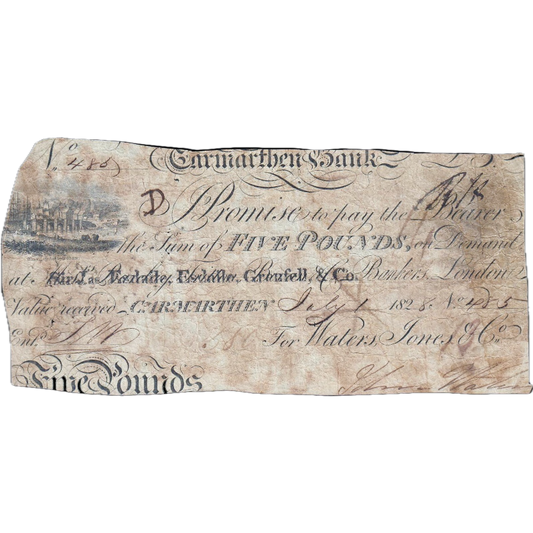 No. 485 Carmarthen Bank £5
D I Promise to pay the Bearer
the Sum of FIVE POUNDS, on Demand
at Sir Jas. Esdaile, Esdaile, Grenfell, & Co. Bankers, London
Value received CARMARTHEN July 1 1828 No 485
Entd.
For Waters, Jones, & Co.
Five Pounds